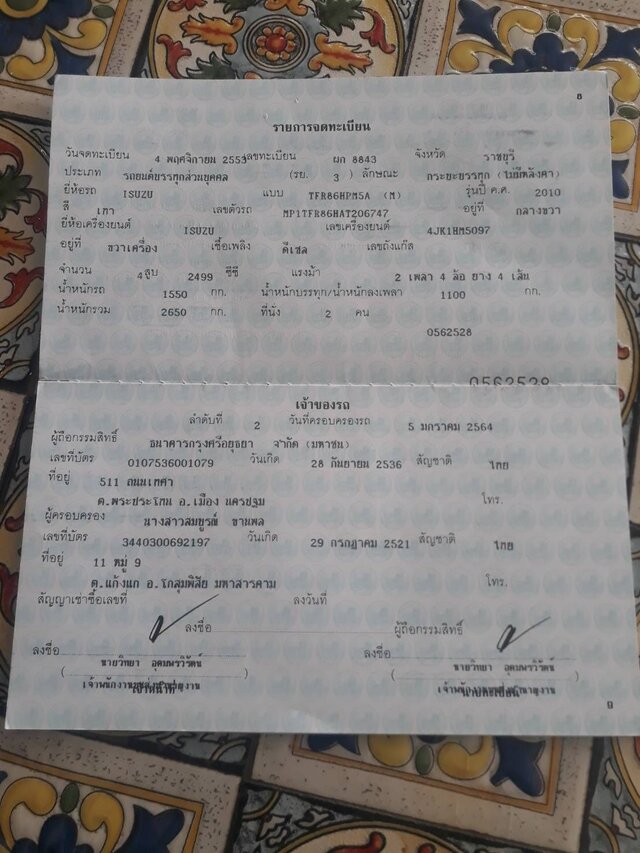 8
รายการจดทะเบียน
วันจดทะเบียน 4 พฤศจิกายน 2553 เลขทะเบียน ผก 8843 จังหวัด ราชบุรี
ประเภท รถยนต์บรรทุกส่วนบุคคล (รย. 3 ) ลักษณะ กระบะบรรทุก (ไม่มีหลังคา)
ยี่ห้อรถ ISUZU แบบ TFR86HPM5A (M) รุ่นปี ค.ศ. 2010
สี เทา เลขตัวรถ MP1TFR86HAT206747 อยู่ที่ กลางขวา
ยี่ห้อเครื่องยนต์ ISUZU เลขเครื่องยนต์ 4JK1HM5097
อยู่ที่ ขวาเครื่อง เชื้อเพลิง ดีเซล เลขถังแก๊ส
จำนวน 4 สูบ 2499 ซีซี แรงม้า 2 เพลา 4 ล้อ ยาง 4 เส้น
น้ำหนักรถ 1550 กก. น้ำหนักบรรทุก/น้ำหนักลงเพลา 1100 กก.
น้ำหนักรวม 2650 กก. ที่นั่ง 2 คน
0562528
0562528
เจ้าของรถ
ลำดับที่ 2 วันที่ครอบครองรถ 5 มกราคม 2564
ผู้ถือกรรมสิทธิ์ ธนาคารกรุงศรีอยุธยา จำกัด (มหาชน)
เลขที่บัตร 0107536001079 วันเกิด 28 กันยายน 2536 สัญชาติ ไทย
ที่อยู่ 511 ถนนเทศา
ต.พระประโทน อ.เมือง นครปฐม โทร.
ผู้ครอบครอง นางสาวสมบูรณ์ ขานพล
เลขที่บัตร 3440300692197 วันเกิด 29 กรกฎาคม 2521 สัญชาติ ไทย
ที่อยู่ 11 หมู่ 9
ต.แก้งแก อ.โกสุมพิสัย มหาสารคาม โทร.
สัญญาเช่าซื้อเลขที่ ลงวันที่
ลงชื่อ ผู้ถือกรรมสิทธิ์
ลงชื่อ ลงชื่อ
นายวิทยา อุดมพรวิรัตน์ นายวิทยา อุดมพรวิรัตน์
9